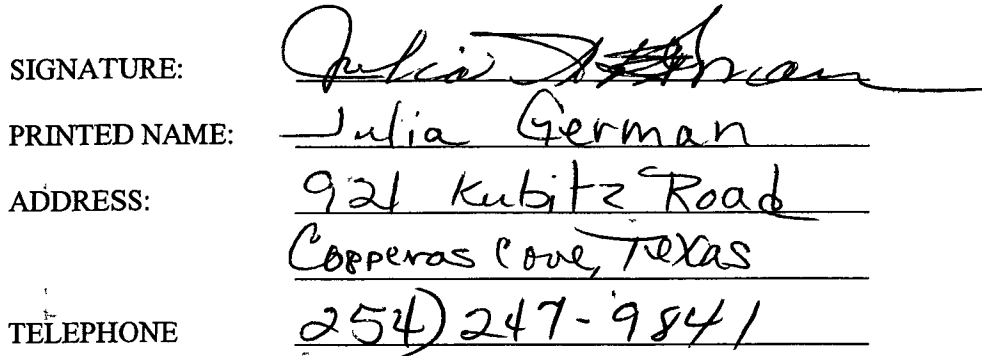 SIGNATURE: Julia
PRINTED NAME: Julia German
ADDRESS: 921 Kubitz Road
Copperas Cove, Texas
TELEPHONE 254) 247-9841